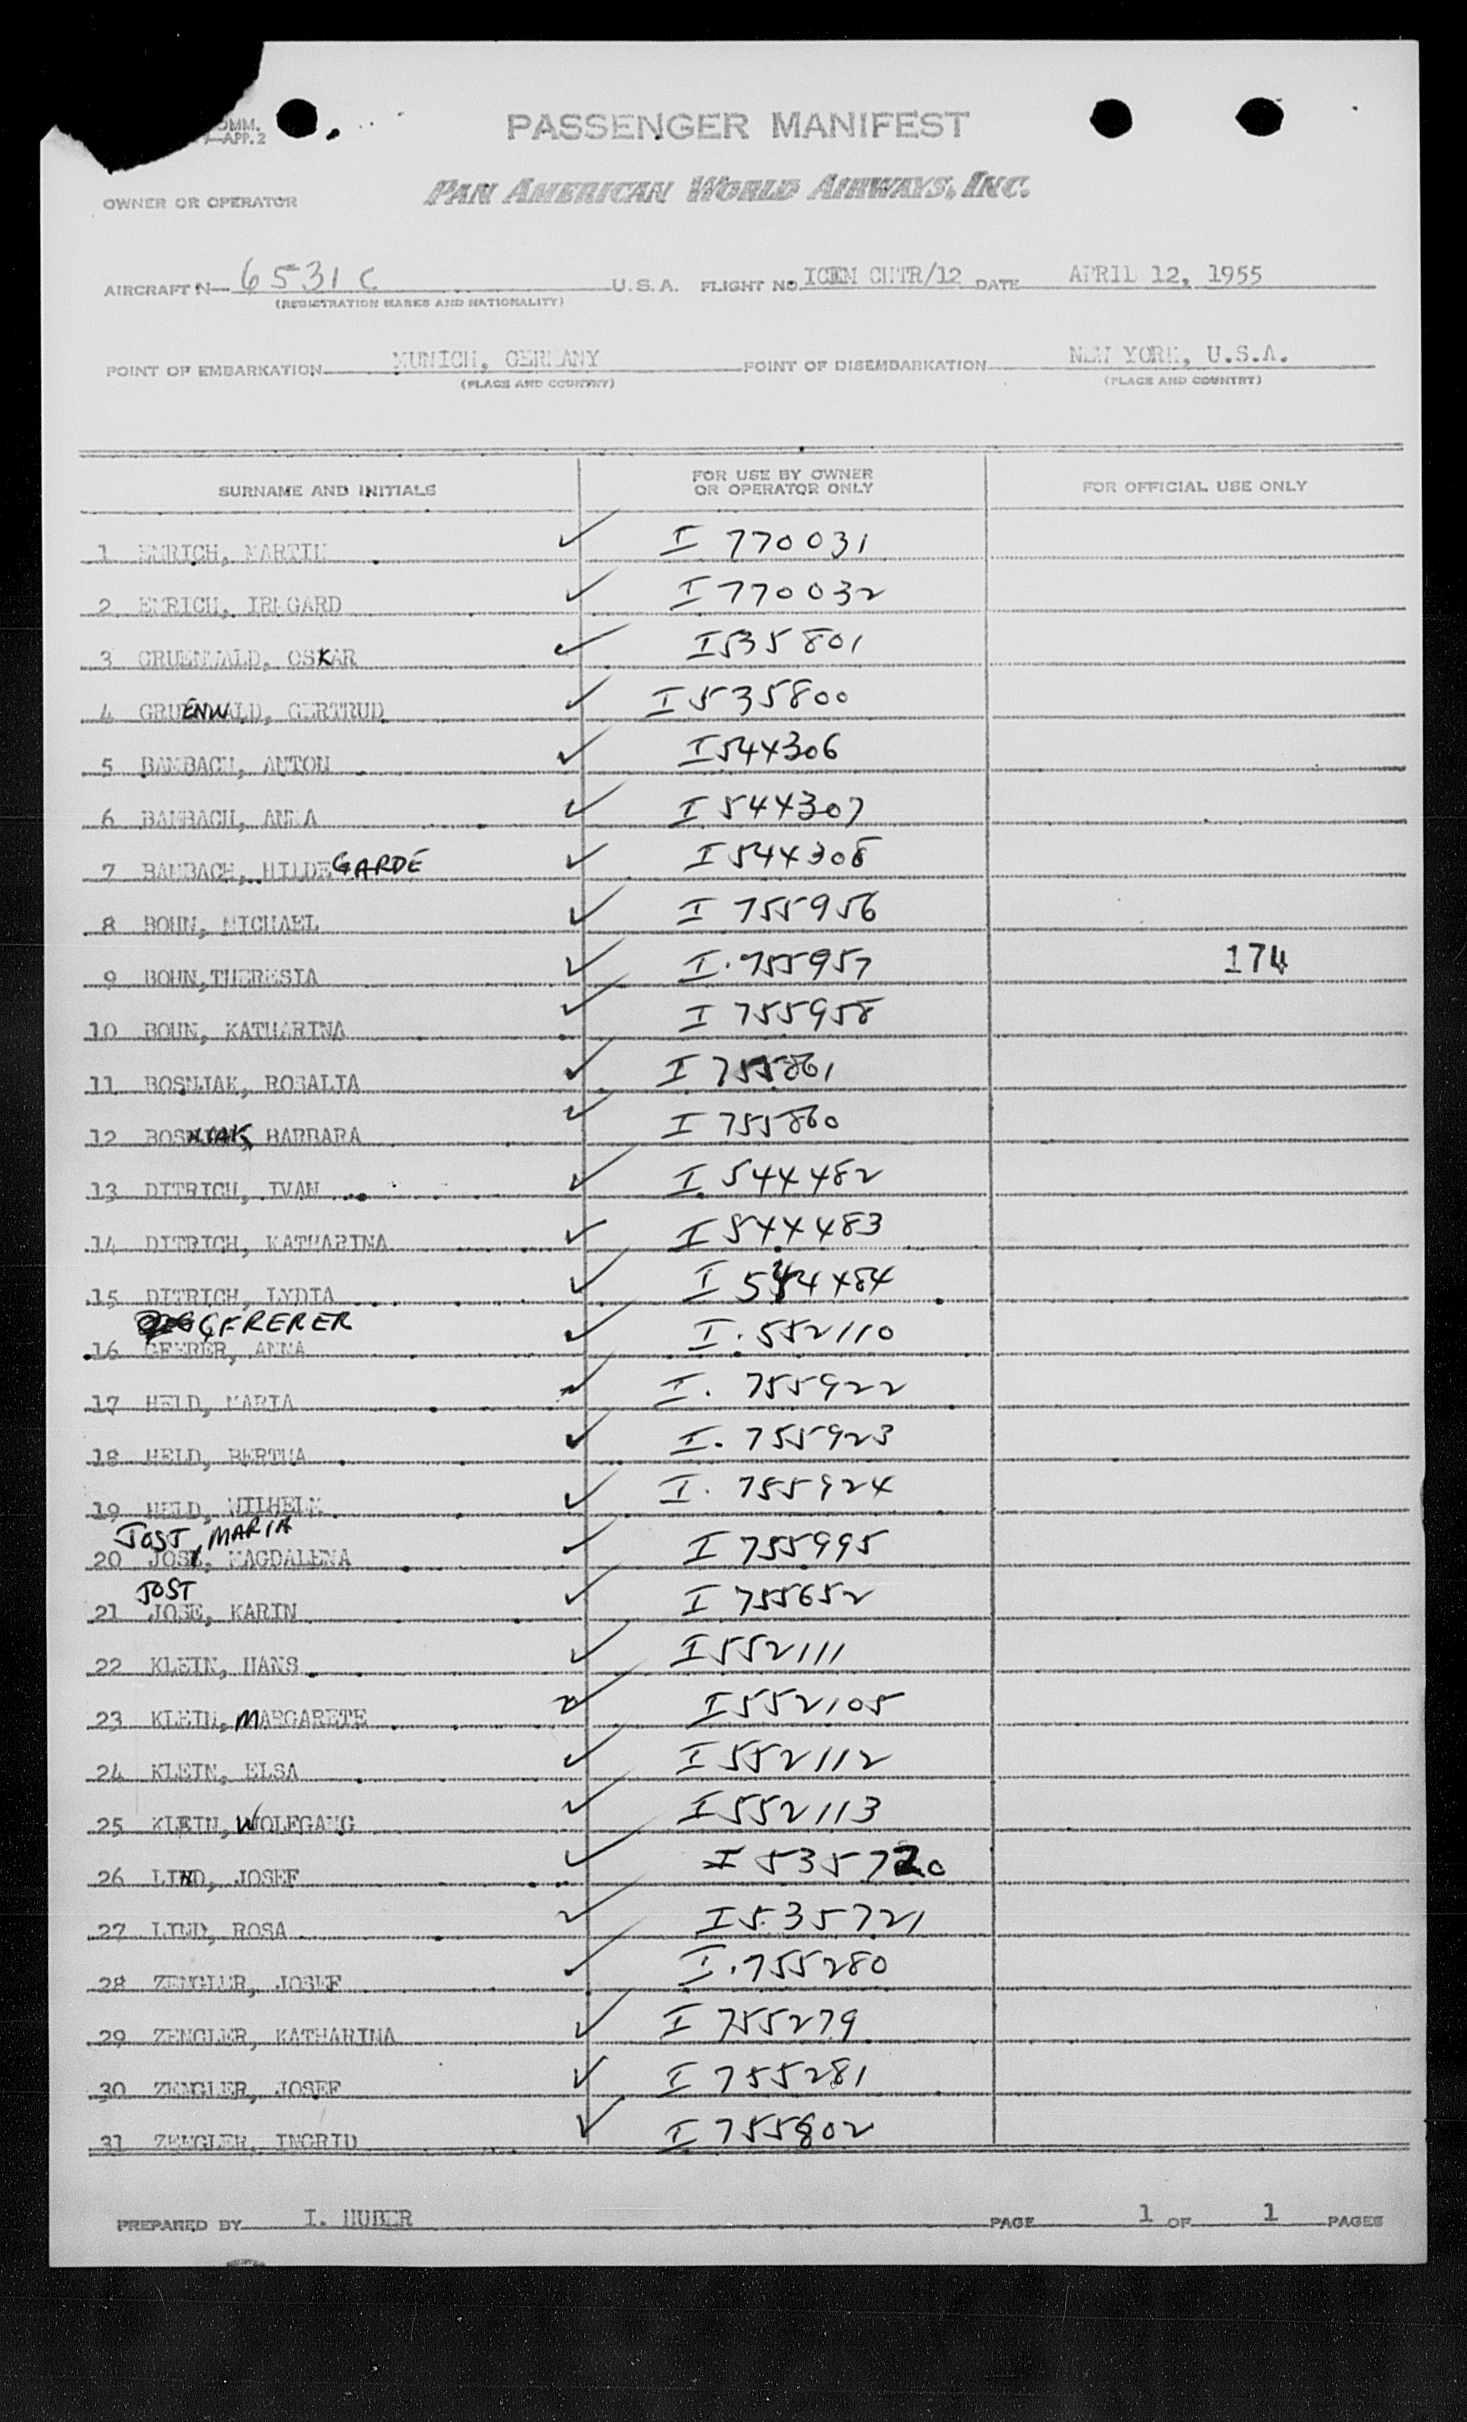 OMM.
APP.2
PASSENGER MANIFEST
PAN AMERICAN WORLD AIRWAYS, INC.
OWNER OR OPERATOR
AIRCRAFT N 6531C U.S.A. FLIGHT NO. ICEM CHTR/12 DATE APRIL 12, 1955
(REGISTRATION MARKS AND NATIONALITY)
POINT OF EMBARKATION MUNICH, GERMANY POINT OF DISEMBARKATION NEW YORK, U.S.A.
(PLACE AND COUNTRY) (PLACE AND COUNTRY)
SURNAME AND INITIALS FOR USE BY OWNER OR OPERATOR ONLY FOR OFFICIAL USE ONLY
1 EMRICH, MARTIN ✓ I 770031
2 EMRICH, IRMGARD ✓ I 770032
3 GRUENWALD, OSKAR ✓ I535801
4 GRUENWALD, GERTRUD ✓ I535800
5 BAMBACH, ANTON ✓ I544306
6 BAMBACH, ANNA ✓ I 544307
7 BAMBACH, HILDEGARDE ✓ I544308
8 BOHN, MICHAEL ✓ I 755956
9 BOHN, THERESIA ✓ I.755957 174
10 BOHN, KATHARINA ✓ I 755958
11 BOSNJAK, ROSALIA ✓ I 755861
12 BOSNJAK, BARBARA ✓ I 755860
13 DITRICH, IVAN ✓ I 544482
14 DITRICH, KATHARINA ✓ I 544483
15 DITRICH, LYDIA ✓ I 544484
GFRERER
16 GFERER, ANNA ✓ I.552110
17 HELD, MARIA ✓ I. 755922
18 HELD, BERTHA ✓ I. 755923
19 HELD, WILHELM ✓ I. 755924
JOST, MARIA
20 JOSE, MAGDALENA ✓ I 755995
JOST
21 JOSE, KARIN ✓ I 755652
22 KLEIN, HANS ✓ I552111
23 KLEIN, MARGARETE ✓ I552105
24 KLEIN, ELSA ✓ I552112
25 KLEIN, WOLFGANG ✓ I552113
26 LIND, JOSEF ✓ I 535720
27 LIND, ROSA ✓ I535721
28 ZENGLER, JOSEF ✓ I.755280
29 ZENGLER, KATHARINA ✓ I 755279
30 ZENGLER, JOSEF ✓ I 755281
31 ZENGLER, INGRID ✓ I 755802
PREPARED BY I. HUBER PAGE 1 OF 1 PAGES